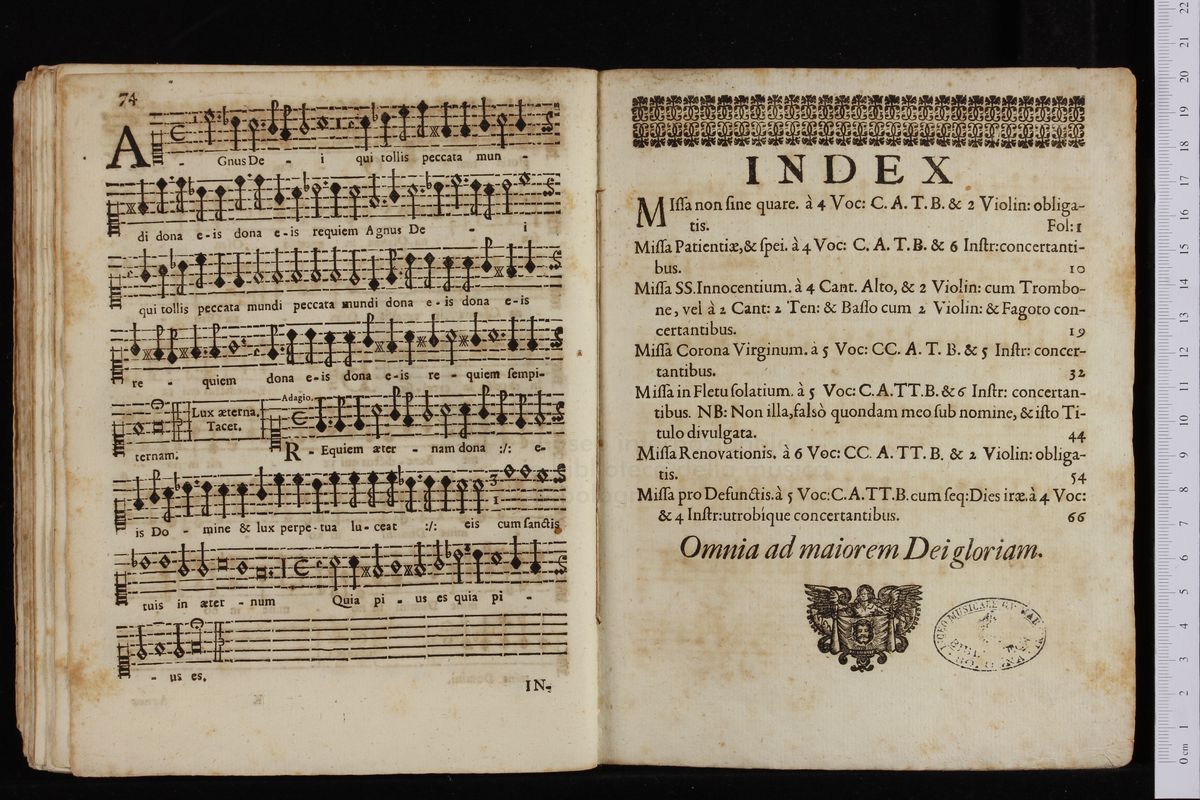 74
AGnus De - i qui tollis peccata mun -
di dona e-is dona e-is requiem Agnus De - i
qui tollis peccata mundi peccata mundi dona e-is dona e-is
re - quiem dona e-is dona e-is re - quiem sempi-
Lux æterna.
Tacet.
Adagio.
ternam. R - Equiem æter - nam dona :/: e-
is Do - mine & lux perpe-tua lu-ceat :/: eis cum sanctis
tuis in æter - num Quia pi - us es quia pi -
- us es.
IN-
INDEX
MIſſa non ſine quare. à 4 Voc: C. A. T. B. & 2 Violin: obliga-
tis. Fol: 1
Miſſa Patientiæ, & ſpei. à 4 Voc: C. A. T. B. & 6 Inſtr: concertanti-
bus. 10
Miſſa SS. Innocentium. à 4 Cant. Alto, & 2 Violin: cum Trombo-
ne, vel à 2 Cant: 2 Ten: & Baſſo cum 2 Violin: & Fagoto con-
certantibus. 19
Miſſa Corona Virginum. à 5 Voc: CC. A. T. B. & 5 Inſtr: concer-
tantibus. 32
Miſſa in Fletu ſolatium. à 5 Voc: C. A. TT. B. & 6 Inſtr: concertan-
tibus. NB: Non illa, falsò quondam meo ſub nomine, & iſto Ti-
tulo divulgata. 44
Miſſa Renovationis. à 6 Voc: CC. A. TT. B. & 2 Violin: obliga-
tis. 54
Miſſa pro Defunctis. à 5 Voc: C. A. TT. B. cum ſeq: Dies iræ. à 4 Voc:
& 4 Inſtr: utrobique concertantibus. 66
Omnia ad maiorem Dei gloriam.
LICEO MUSICALE
BOLOGNA
22
21
20
19
18
17
16
15
14
13
12
11
10
9
8
7
6
5
4
3
2
1
0 cm